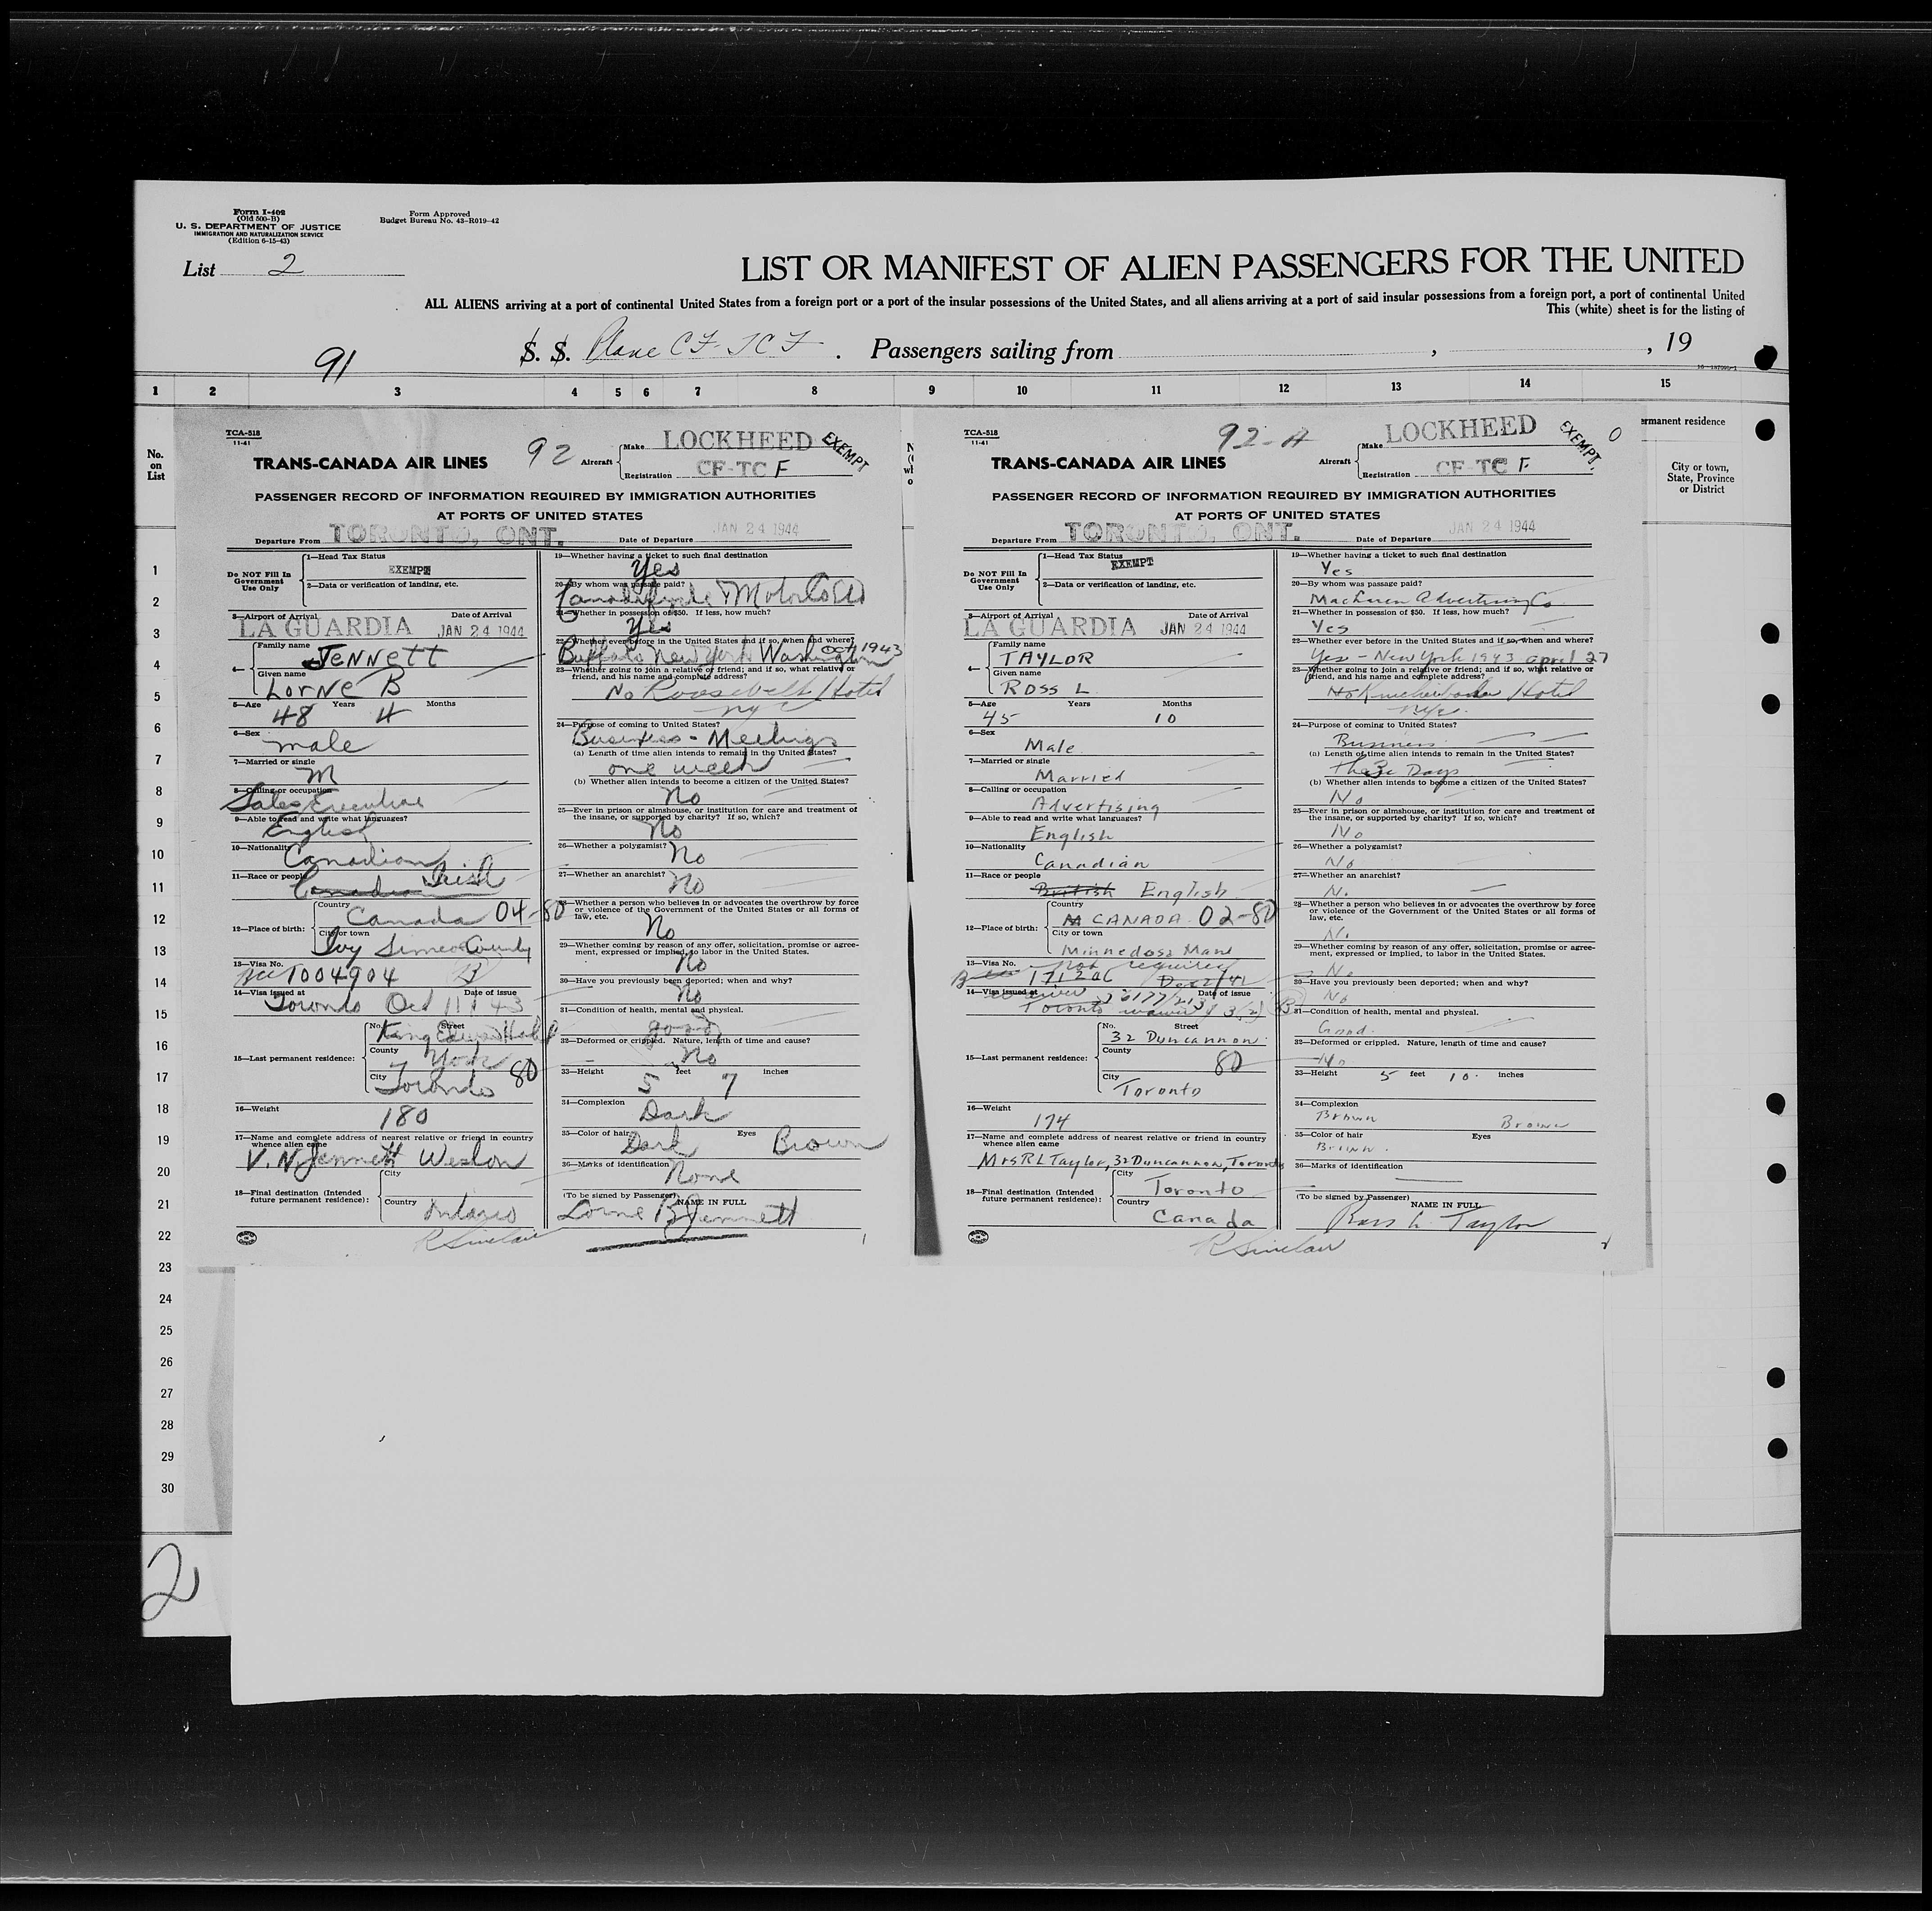 Form I-402
(Old 500-B)
U. S. DEPARTMENT OF JUSTICE
IMMIGRATION AND NATURALIZATION SERVICE
(Edition 6-15-43)
Form Approved
Budget Bureau No. 43-R019-42
List 2
LIST OR MANIFEST OF ALIEN PASSENGERS FOR THE UNITED
ALL ALIENS arriving at a port of continental United States from a foreign port or a port of the insular possessions of the United States, and all aliens arriving at a port of said insular possessions from a foreign port, a port of continental United
This (white) sheet is for the listing of
91
S. S. Plane CF-TCF. Passengers sailing from , , 19
1 2 3 4 5 6 7 8 9 10 11 12 13 14 15
No.
on
List
1
2
3
4
5
6
7
8
9
10
11
12
13
14
15
16
17
18
19
20
21
22
23
24
25
26
27
28
29
30
2
TCA-518
11-41
92
TRANS-CANADA AIR LINES
Aircraft
Make LOCKHEED
Registration CF-TC F
EXEMPT
PASSENGER RECORD OF INFORMATION REQUIRED BY IMMIGRATION AUTHORITIES
AT PORTS OF UNITED STATES
Departure From TORONTO, ONT. Date of Departure JAN 24 1944
Do NOT Fill In
Government
Use Only
1—Head Tax Status
EXEMPT
2—Data or verification of landing, etc.
3—Airport of Arrival Date of Arrival
LA GUARDIA JAN 24 1944
4—
Family name
JENNETT
Given name
LORNE B
5—Age 48 Years 4 Months
6—Sex
male
7—Married or single
M
8—Calling or occupation
Sales Executive
9—Able to read and write what languages?
English
10—Nationality
Canadian
11—Race or people
Canadian Irish
12—Place of birth:
Country
Canada 04-80
City or town
Ivy Simcoe County
13—Visa No.
1004904
14—Visa issued at Date of issue
Toronto Oct 11/43
15—Last permanent residence:
No. Street
King Edward Hotel
County
York
City
Toronto 80
16—Weight
180
17—Name and complete address of nearest relative or friend in country
whence alien came
V. N. Jennett Weston
18—Final destination (Intended
future permanent residence):
City
Country
Ontario
R Sinclair
19—Whether having a ticket to such final destination
Yes
20—By whom was passage paid?
21—Whether in possession of $50. If less, how much?
Yes
22—Whether ever before in the United States and if so, when and where?
Buffalo New York Washington Oct 1943
23—Whether going to join a relative or friend; and if so, what relative or
friend, and his name and complete address?
No Roosevelt Hotel
NYC
24—Purpose of coming to United States?
Business - Meetings
(a) Length of time alien intends to remain in the United States?
one week
(b) Whether alien intends to become a citizen of the United States?
No
25—Ever in prison or almshouse, or institution for care and treatment of
the insane, or supported by charity? If so, which?
No
26—Whether a polygamist?
No
27—Whether an anarchist?
No
28—Whether a person who believes in or advocates the overthrow by force
or violence of the Government of the United States or all forms of
law, etc.
No
29—Whether coming by reason of any offer, solicitation, promise or agree-
ment, expressed or implied, to labor in the United States.
No
30—Have you previously been deported; when and why?
No
31—Condition of health, mental and physical.
good
32—Deformed or crippled. Nature, length of time and cause?
No
33—Height 5 feet 7 inches
34—Complexion
Dark
35—Color of hair Eyes
Dark Brown
36—Marks of identification
None
(To be signed by Passenger) NAME IN FULL
Lorne B Jennett
TCA-518
11-41
92-A
TRANS-CANADA AIR LINES
Aircraft
Make LOCKHEED
Registration CF-TC F
EXEMPT.
0
PASSENGER RECORD OF INFORMATION REQUIRED BY IMMIGRATION AUTHORITIES
AT PORTS OF UNITED STATES
Departure From TORONTO, ONT. Date of Departure JAN 24 1944
Do NOT Fill In
Government
Use Only
1—Head Tax Status
EXEMPT
2—Data or verification of landing, etc.
3—Airport of Arrival Date of Arrival
LA GUARDIA JAN 24 1944
4—
Family name
TAYLOR
Given name
ROSS L
5—Age Years Months
45 10
6—Sex
Male
7—Married or single
Married
8—Calling or occupation
Advertising
9—Able to read and write what languages?
English
10—Nationality
Canadian
11—Race or people
British English
12—Place of birth:
Country
CANADA 02-80
City or town
Minnedosa Man
13—Visa No.
not required
14—Visa issued at Date of issue
Toronto waiver
15—Last permanent residence:
No. Street
32 Duncannon
County
80
City
Toronto
16—Weight
174
17—Name and complete address of nearest relative or friend in country
whence alien came
Mrs R L Taylor, 32 Duncannon, Toronto
18—Final destination (Intended
future permanent residence):
City
Toronto
Country
Canada
R Sinclair
19—Whether having a ticket to such final destination
Yes
20—By whom was passage paid?
MacLaren Advertising Co.
21—Whether in possession of $50. If less, how much?
Yes
22—Whether ever before in the United States and if so, when and where?
Yes - New York 1943 april 27
23—Whether going to join a relative or friend; and if so, what relative or
friend, and his name and complete address?
No Knickerbocker Hotel
NYC.
24—Purpose of coming to United States?
Business
(a) Length of time alien intends to remain in the United States?
Days
(b) Whether alien intends to become a citizen of the United States?
No
25—Ever in prison or almshouse, or institution for care and treatment of
the insane, or supported by charity? If so, which?
No
26—Whether a polygamist?
No
27—Whether an anarchist?
No
28—Whether a person who believes in or advocates the overthrow by force
or violence of the Government of the United States or all forms of
law, etc.
No
29—Whether coming by reason of any offer, solicitation, promise or agree-
ment, expressed or implied, to labor in the United States.
No
30—Have you previously been deported; when and why?
No
31—Condition of health, mental and physical.
Good
32—Deformed or crippled. Nature, length of time and cause?
No
33—Height 5 feet 10 inches
34—Complexion
Brown Brown
35—Color of hair Eyes
Brown
36—Marks of identification
(To be signed by Passenger) NAME IN FULL
Ross L. Taylor
ermanent residence
City or town,
State, Province
or District